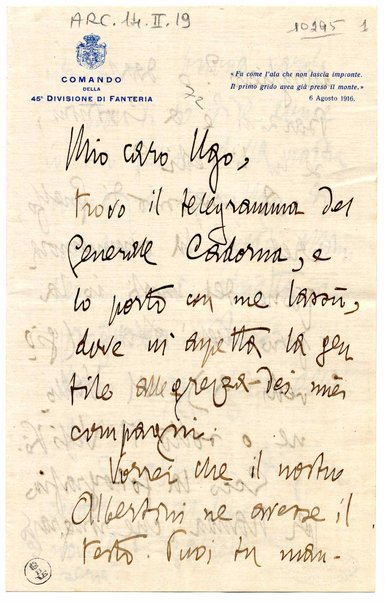 ARC. 14. II. 19
10295 1
COMANDO
DELLA
45ª DIVISIONE DI FANTERIA
« Fu come l'ala che non lascia impronte.
Il primo grido avea già preso il monte. »
6 Agosto 1916.
Mio caro Ugo,
trovo il telegramma del
Generale Cadorna, e
lo porto con me lassù,
dove mi aspetta la gen
tile allegrezza dei miei
compagni.
Vorrei che il nostro
Albertini ne avesse il
testo. Puoi tu man-